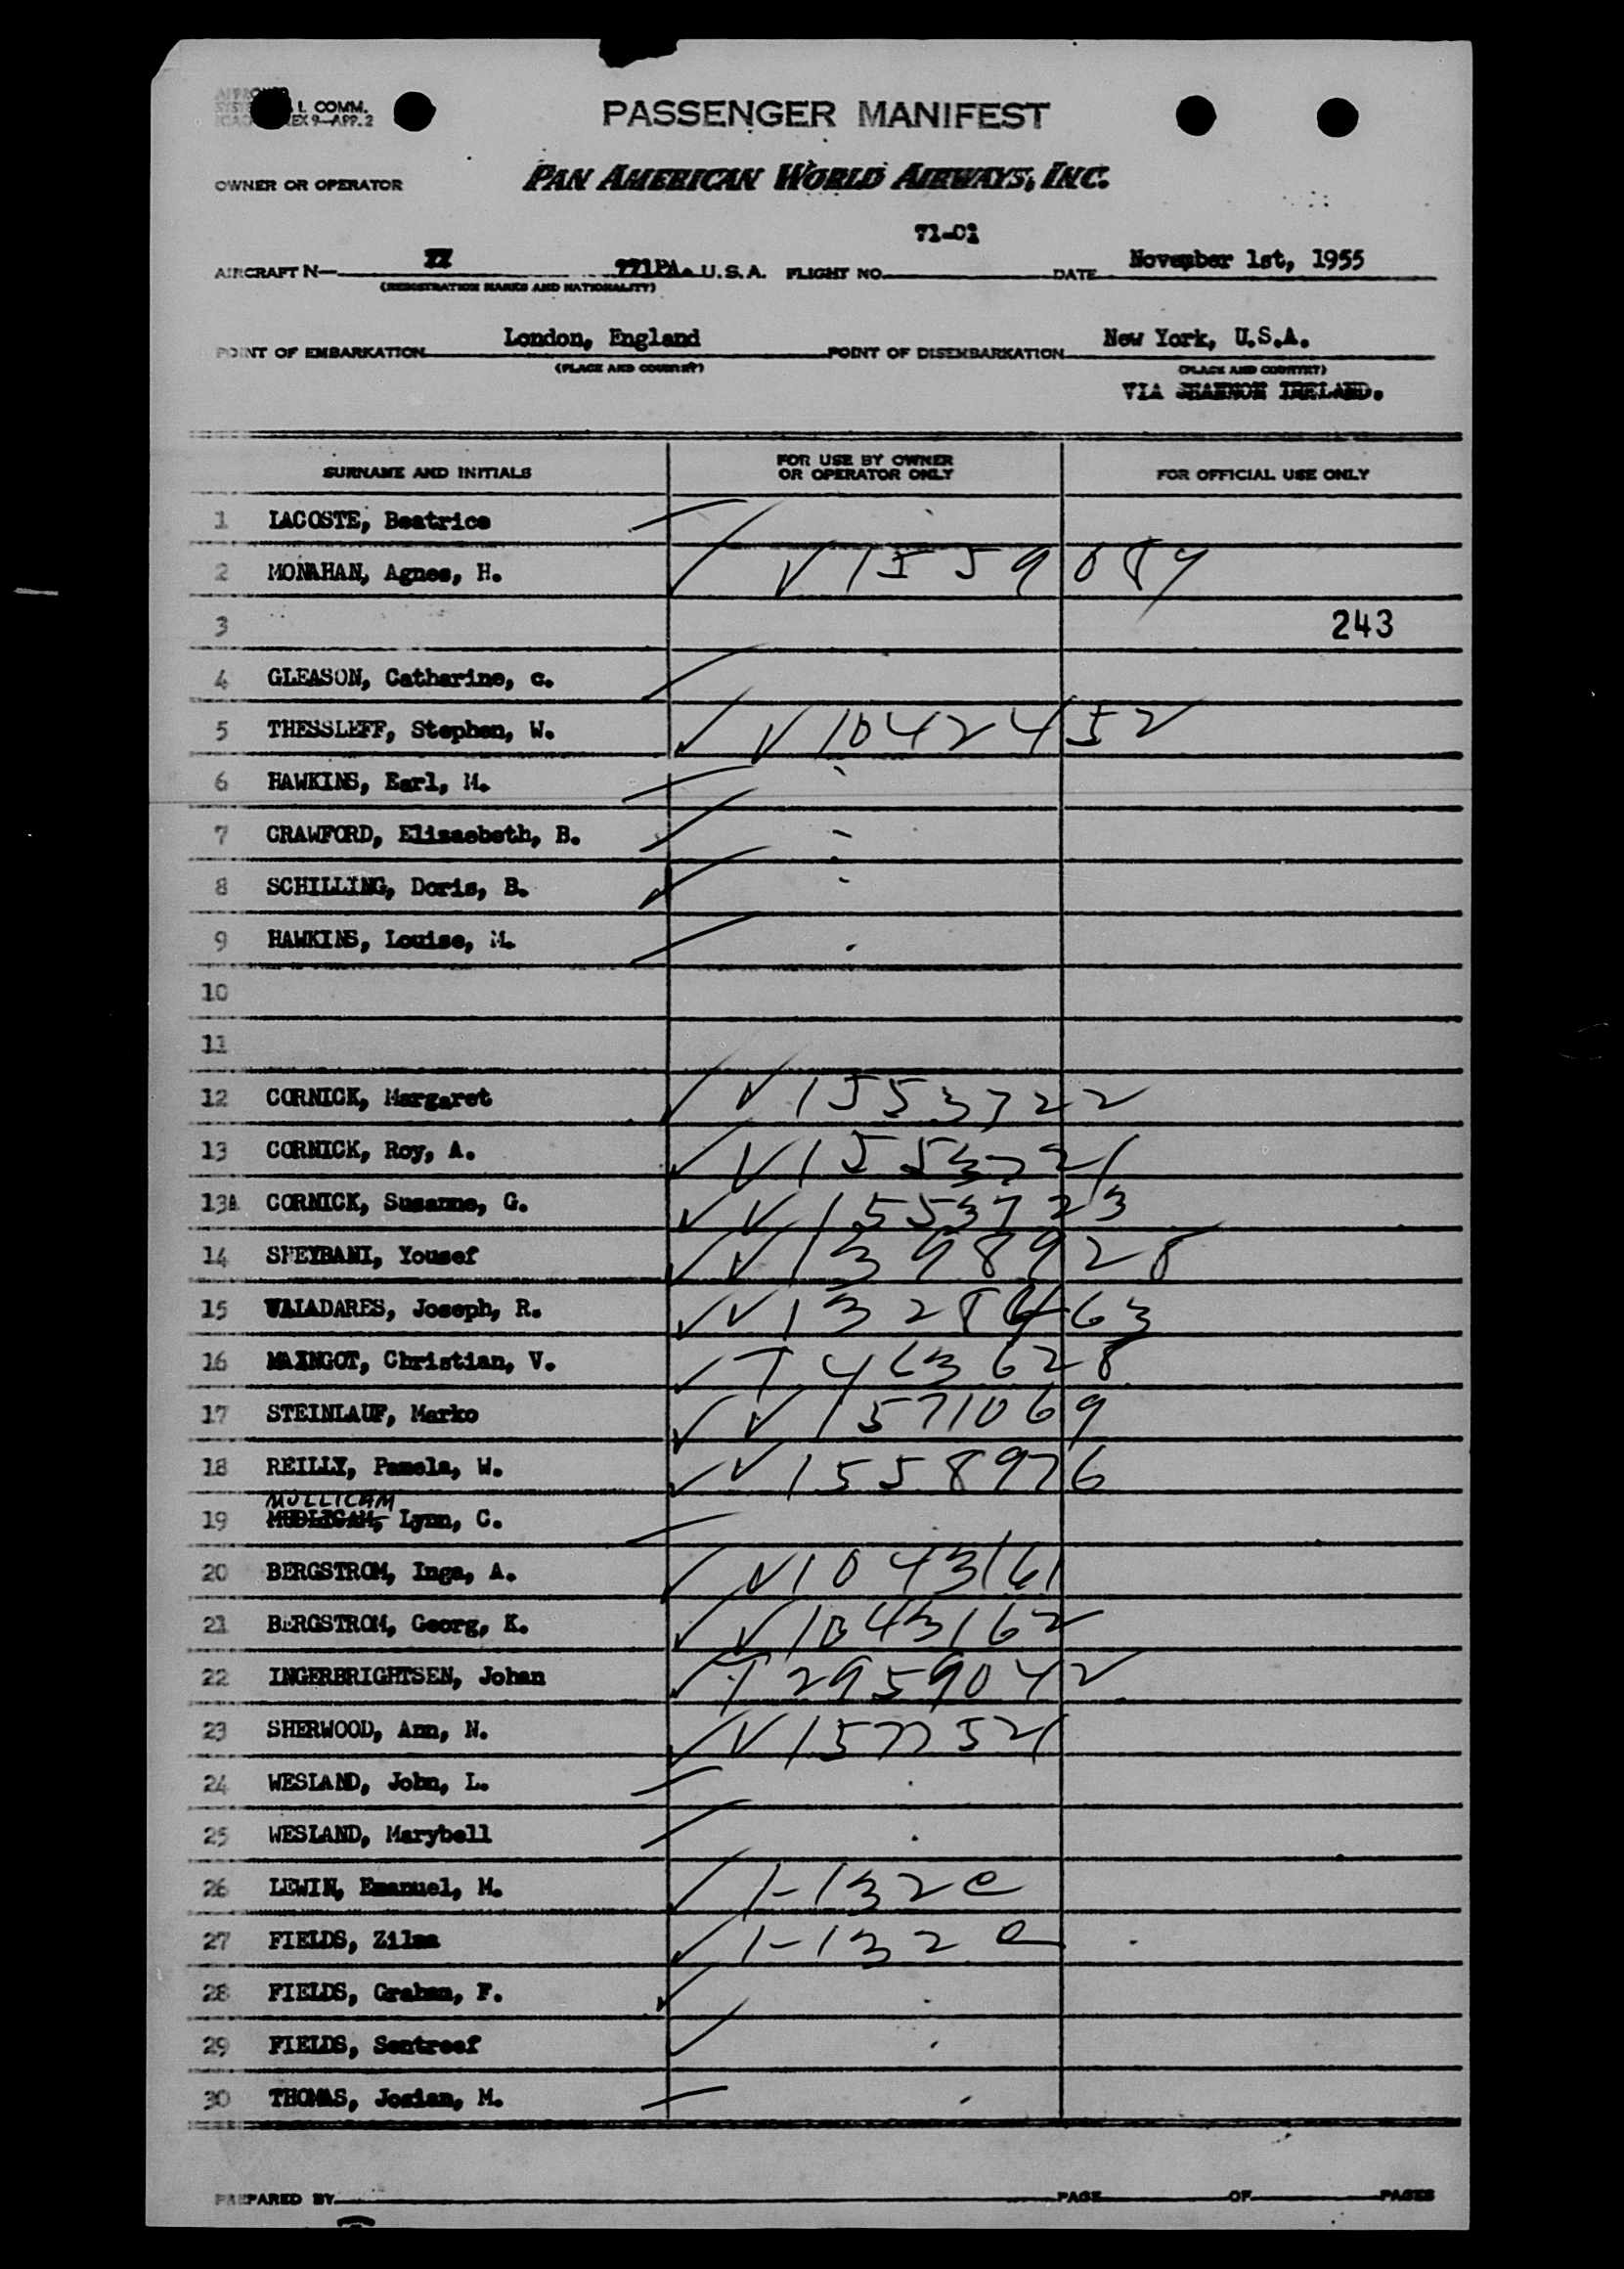 I. COMM.
EX 9—APP. 2
PASSENGER MANIFEST
OWNER OR OPERATOR PAN AMERICAN WORLD AIRWAYS, INC.
71-01
AIRCRAFT N— 771PA. U.S.A. FLIGHT NO. DATE November 1st, 1955
(REGISTRATION MARKS AND NATIONALITY)
POINT OF EMBARKATION London, England POINT OF DISEMBARKATION New York, U.S.A.
(PLACE AND COUNTRY) (PLACE AND COUNTRY)
VIA SHANNON IRELAND.
SURNAME AND INITIALS FOR USE BY OWNER OR OPERATOR ONLY FOR OFFICIAL USE ONLY
1 LACOSTE, Beatrice
2 MONAHAN, Agnes, H. V1559089
3 243
4 GLEASON, Catharine, c.
5 THESSLEFF, Stephen, W. V1042452
6 HAWKINS, Earl, M.
7 CRAWFORD, Elisaebeth, B.
8 SCHILLING, Doris, B.
9 HAWKINS, Louise, M.
10
11
12 CORNICK, Margaret V1553722
13 CORNICK, Roy, A. V1553721
13A CORNICK, Susanne, G. V1553723
14 SHEYBANI, Yousef V1398928
15 VALADARES, Joseph, R. V1328463
16 MAINGOT, Christian, V. T463628
17 STEINLAUF, Marko V1571069
18 REILLY, Pamela, W. V1558976
MULLICAM
19 Lynn, C.
20 BERGSTROM, Inga, A. V1043161
21 BERGSTROM, Georg, K. V1043162
22 INGERBRIGHTSEN, Johan T2959042
23 SHERWOOD, Ann, N. V1577521
24 WESLAND, John, L.
25 WESLAND, Marybell
26 LEWIN, Emanuel, M. I-132e
27 FIELDS, Zilma I-132e
28 FIELDS, Graham, F.
29 FIELDS, Sentreef
30 THOMAS, Josian, M.
PREPARED BY PAGE OF PAGES